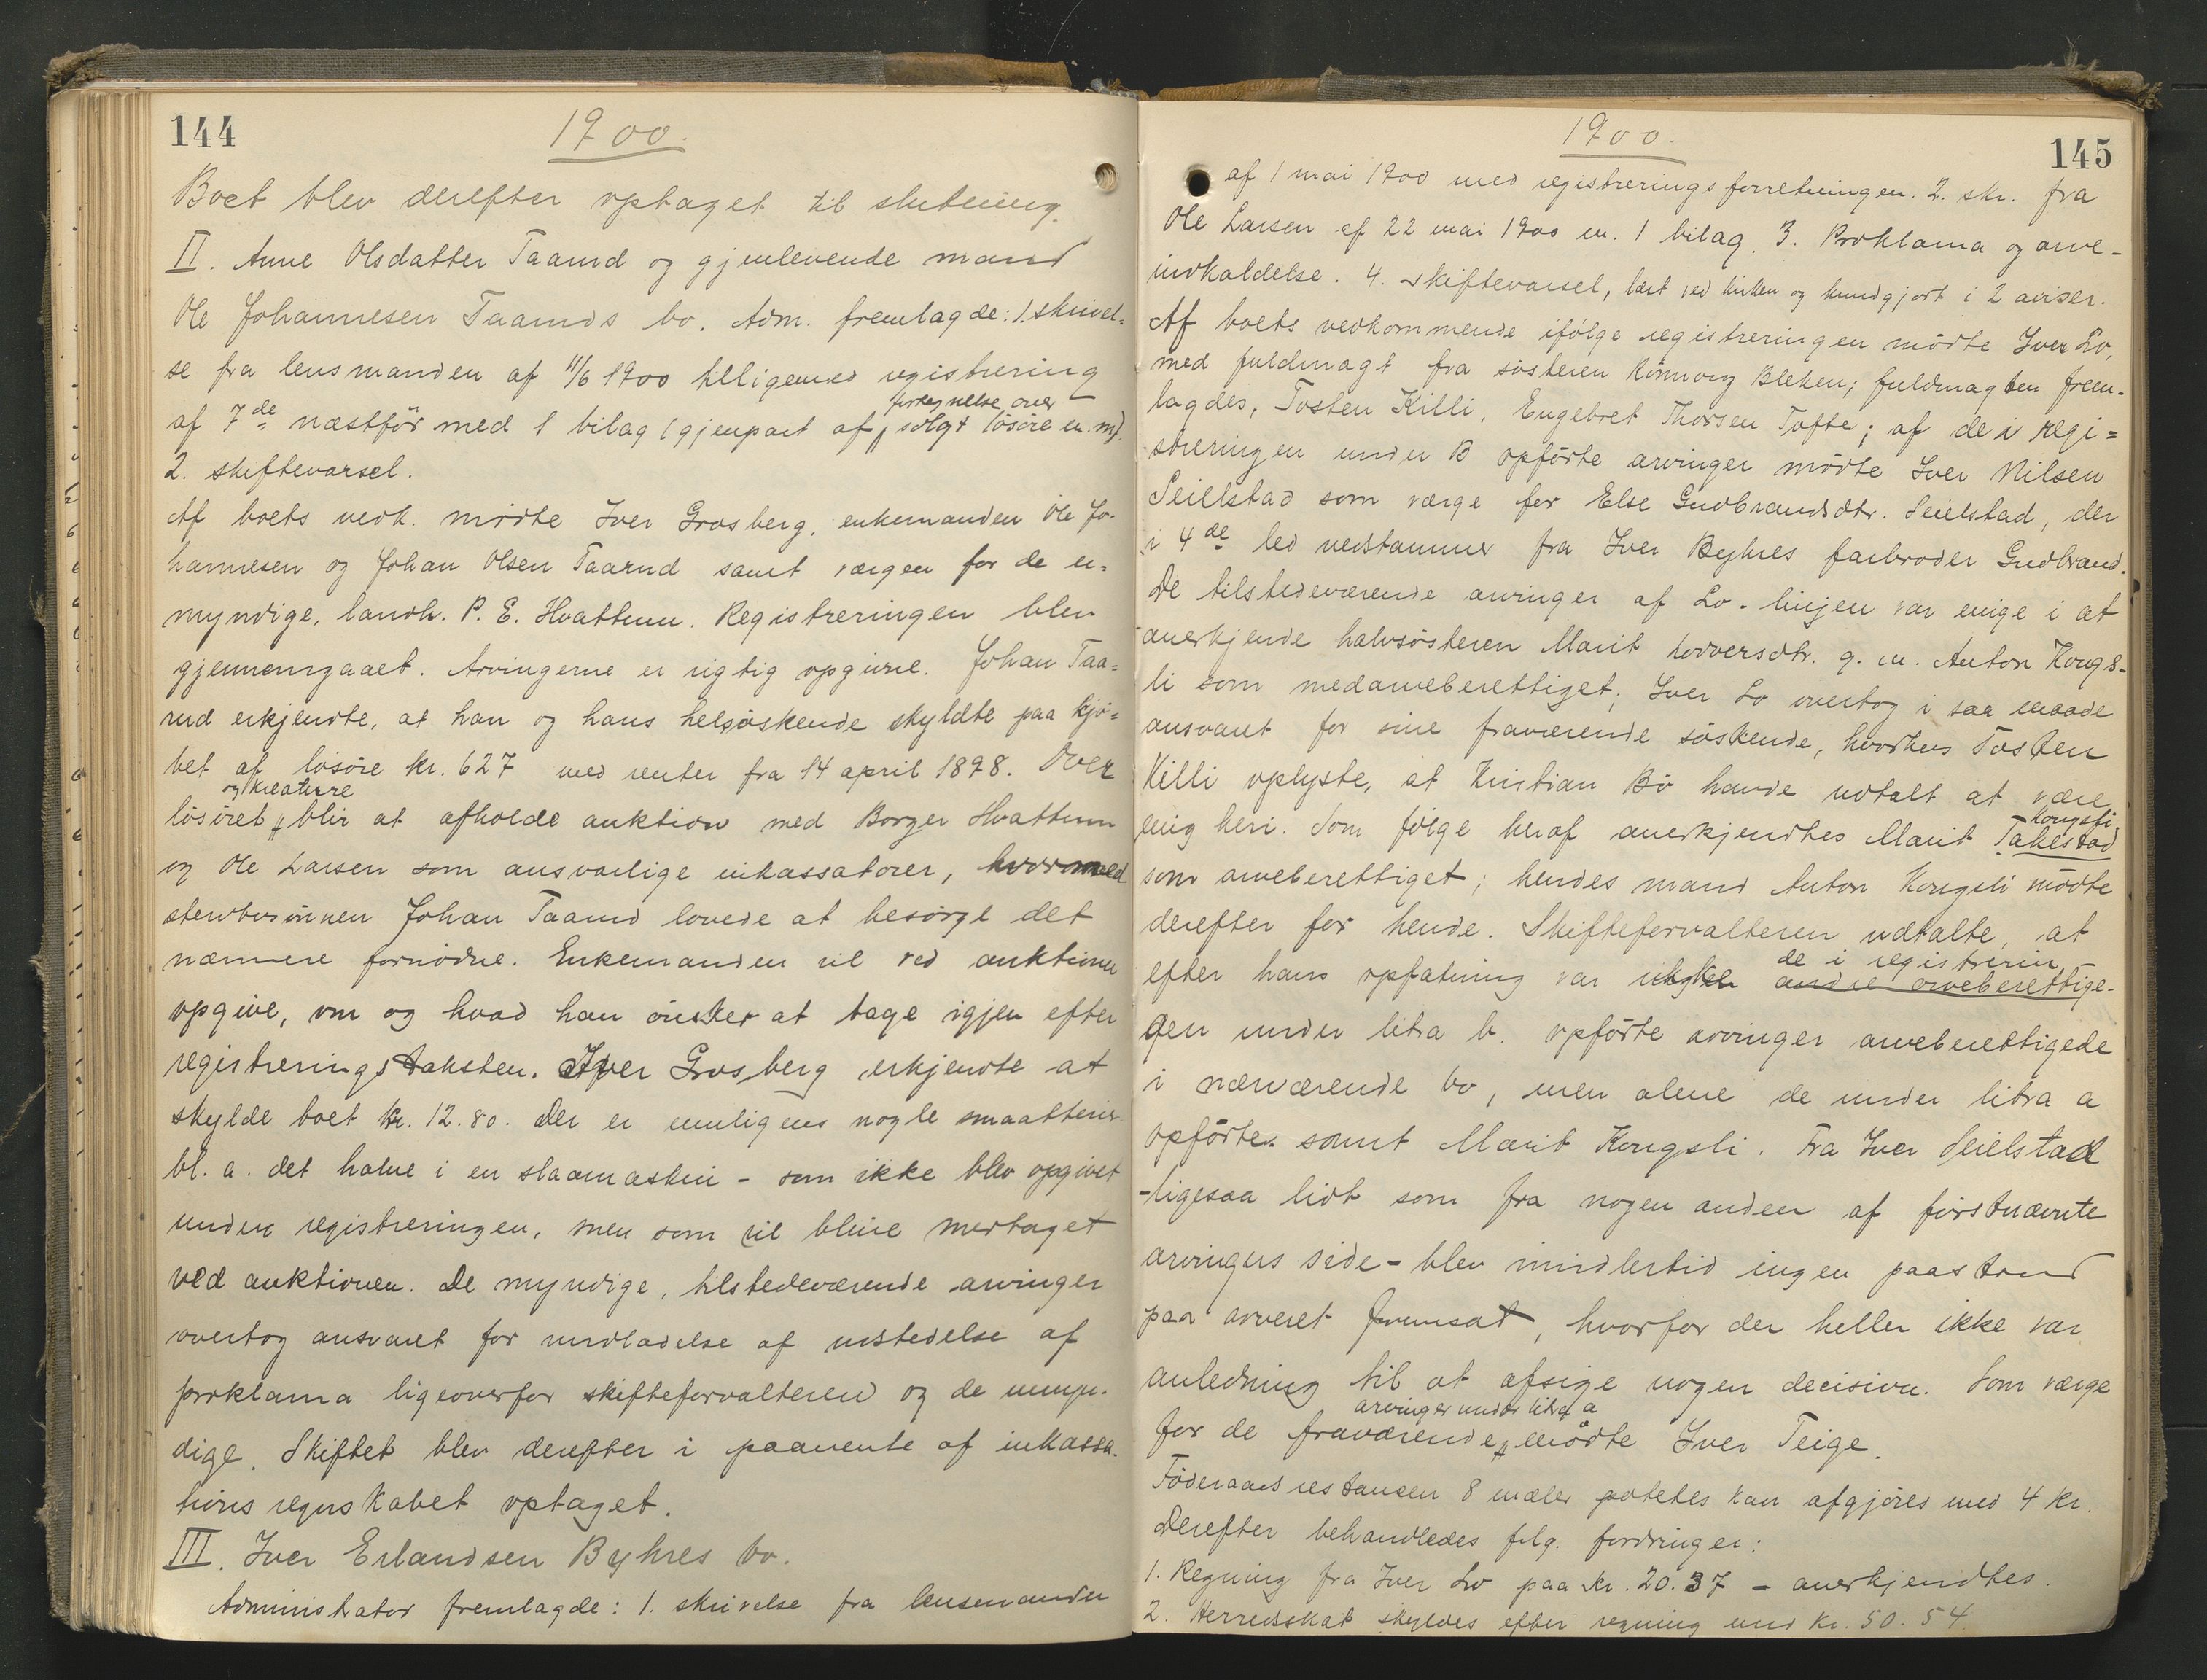 144
1900.
Boet blev derefter optaget til slutning.
II. Anne Olsdatter Taarud og gjenlevende mand
Ole Johannesen Taaruds bo. Adm. fremlagde: 1. skrivel-
se fra lensmanden af 11/6 1900 tilligemed registrering
fortegnelse over
af 7de næstfør med 1 bilag (gjenpart af solgt løsøre m. m).
2. skiftevarsel.
Af boets vedk. mødte Iver Grosberg, enkemanden Ole Jo-
hannesen og Johan Olsen Taarud samt værgen for de u-
myndige, landh. P. E. Hvattum. Registreringen blev
gjennemgaaet. Arvingerne er rigtig opgivne. Johan Taa=
rud erkjendte, at han og hans helsøskende skyldte paa kjø=
bet af løsøre kr. 627 med renter fra 14 april 1898. Over
og kreaturer
løsøret blir at afholde auktion med Borger Hvattum
og Ole Larsen som ansvarlige inkassatorer, hvormed
stervbosønnen Johan Taarud lovede at besørge det
nærmere fornødne. Enkemanden vil ved auktionen
opgive, om og hvad han ønsker at tage igjen efter
registreringstaksten. Iver Grosberg erkjendte at
skylde boet kr. 12.80. Der er muligens nogle smaatterier
bl. a. det halve i en slaamaskin - som ikke blev opgivet
under registreringen, men som vil blive medtaget
ved auktionen. De myndige, tilstedeværende arvinger
overtog ansvaret for undladelse af udstedelse af
proklama ligeoverfor skifteforvalteren og de umyn-
dige. Skiftet blev derefter i paavente af inkassa-
tions regnskabet optaget.
III. Iver Erlandsen Byhres bo.
Administrator fremlagde: 1. skrivelse fra lensmanden
1900.
145
af 1 mai 1900 med registreringsforretningen. 2. skr. fra
Ole Larsen af 22 mai 1900 m. 1 bilag. 3. Proklama og arve-
indkaldelse. 4. skiftevarsel, læst ved kirken og kundgjort i 2 aviser.
Af boets vedkommende ifølge registreringen mødte Iver Lo,
med fuldmagt fra søsteren Rønnoug Bleken; fuldmagten frem-
lagdes, Tosten Killi, Engebret Thorsen Tofte; af de i regi=
streringen under B opførte arvinger mødte Iver Nilsen
Seielstad som værge for Else Gudbrandsdtr. Seielstad, der
i 4de led nedstammer fra Iver Byhres farbroder Gudbrand.
De tilstedeværende arvinger af Lo-linjen var enige i at
anerkjende halvsøsteren Marit Hovversdtr. g. m. Anton Kongs-
li som medarveberettiget; Iver Lo overtog i saa maade
ansvaret for sine fraværende søskende, hvorhos Tosten
Killi oplyste, at Kristian Bø havde udtalt at være
Kongsli
enig heri. Som følge heraf anerkjendtes Marit Takestad
som arveberettiget; hendes mand Anton Kongsli mødte
derefter for hende. Skifteforvalteren udtalte, at
de i registrerin-
efter hans opfatning var ikke andre arveberettige-
gen under litra b. opførte arvinger arveberettigede
i nærværende bo, men alene de under litra a
opførte samt Marit Kongsli. Fra Iver Seielstad
-ligesaa lidt som fra nogen anden af førstnævnte
arvingers side - blev imidlertid ingen paastand
paa arveret fremsat, hvorfor der heller ikke var
anledning til at afsige nogen decision. Som værge
arvinger under litra a
for de fraværende mødte Iver Teige.
Føderaadsrestansen 8 mæler potetes kan afgjøres med 4 kr.
Derefter behandledes følg. fordringer:
1. Regning fra Iver Lo paa kr. 20.37 - anerkjendtes.
2. Herredsskat skyldes efter regning med kr. 50.54.